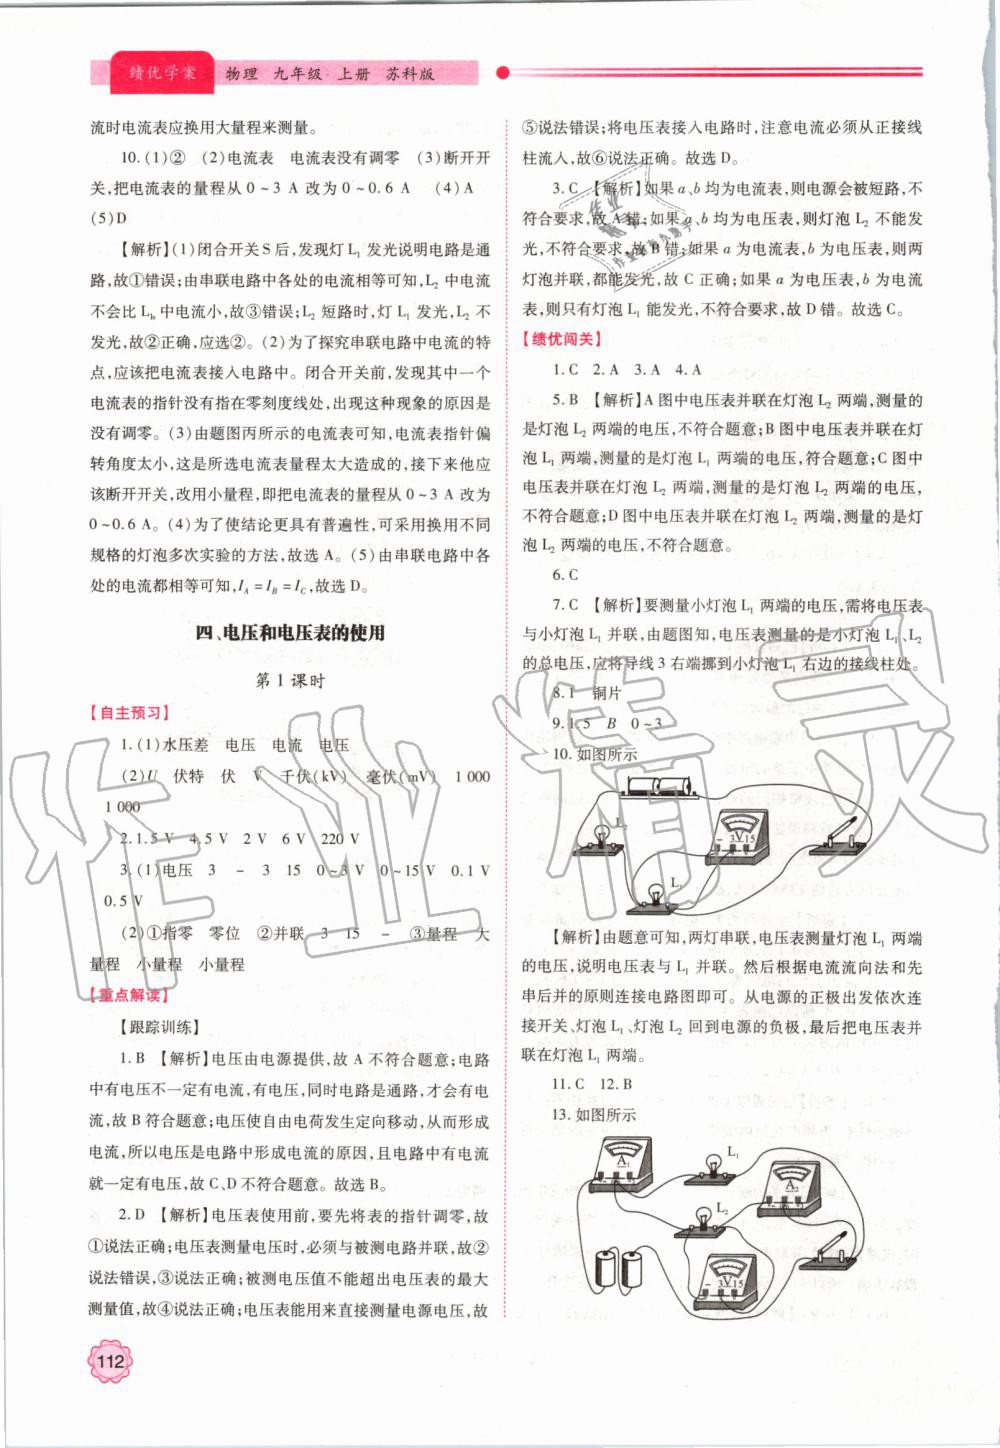 绩优学案 物理 九年级·上册 苏科版
流时电流表应换用大量程来测量。
10.(1)② (2)电流表 电流表没有调零 (3)断开开
关,把电流表的量程从 0～3 A 改为 0～0.6 A (4)A
(5)D
【解析】(1)闭合开关 S 后,发现灯 L₁ 发光说明电路是通
路,故①错误;由串联电路中各处的电流相等可知,L₂ 中电流
不会比 L₁ 中电流小,故③错误;L₂ 短路时,灯 L₁ 发光,L₂ 不
发光,故②正确,应选②。(2)为了探究串联电路中电流的特
点,应该把电流表接入电路中。闭合开关前,发现其中一个
电流表的指针没有指在零刻度线处,出现这种现象的原因是
没有调零。(3)由题图丙所示的电流表可知,电流表指针偏
转角度太小,这是所选电流表量程太大造成的,接下来他应
该断开开关,改用小量程,即把电流表的量程从 0～3 A 改为
0～0.6 A。(4)为了使结论更具有普遍性,可采用换用不同
规格的灯泡多次实验的方法,故选 A。(5)由串联电路中各
处的电流都相等可知,I_A = I_B = I_C,故选 D。
四、电压和电压表的使用
第 1 课时
【自主预习】
1.(1)水压差 电压 电流 电压
(2)U 伏特 伏 V 千伏(kV) 毫伏(mV) 1 000
1 000
2.1.5 V 4.5 V 2 V 6 V 220 V
3.(1)电压 3 - 3 15 0～3 V 0～15 V 0.1 V
0.5 V
(2)①指零 零位 ②并联 3 15 - ③量程 大
量程 小量程 小量程
【重点解读】
【跟踪训练】
1.B 【解析】电压由电源提供,故 A 不符合题意;电路
中有电压不一定有电流,有电压,同时电路是通路,才会有电
流,故 B 符合题意;电压使自由电荷发生定向移动,从而形成
电流,所以电压是电路中形成电流的原因,且电路中有电流
就一定有电压,故 C、D 不符合题意。故选 B。
2.D 【解析】电压表使用前,要先将表的指针调零,故
①说法正确;电压表测量电压时,必须与被测电路并联,故②
说法错误,③说法正确;被测电压值不能超出电压表的最大
测量值,故④说法正确;电压表能用来直接测量电源电压,故
112
⑤说法错误;将电压表接入电路时,注意电流必须从正接线
柱流入,故⑥说法正确。故选 D。
3.C 【解析】如果 a、b 均为电流表,则电源会被短路,不
符合要求,故 A 错;如果 a、b 均为电压表,则灯泡 L₂ 不能发
光,不符合要求,故 B 错;如果 a 为电流表、b 为电压表,则两
灯泡并联,都能发光,故 C 正确;如果 a 为电压表,b 为电流
表,则只有灯泡 L₁ 能发光,不符合要求,故 D 错。故选 C。
【绩优闯关】
1.C 2.A 3.A 4.A
5.B 【解析】A 图中电压表并联在灯泡 L₂ 两端,测量的
是灯泡 L₂ 两端的电压,不符合题意;B 图中电压表并联在灯
泡 L₁ 两端,测量的是灯泡 L₁ 两端的电压,符合题意;C 图中
电压表并联在灯泡 L₂ 两端,测量的是灯泡 L₂ 两端的电压,
不符合题意;D 图中电压表并联在灯泡 L₂ 两端,测量的是灯
泡 L₂ 两端的电压,不符合题意。
6.C
7.C 【解析】要测量小灯泡 L₁ 两端的电压,需将电压表
与小灯泡 L₁ 并联,由题图知,电压表测量的是小灯泡 L₁、L₂
的总电压,应将导线 3 右端挪到小灯泡 L₁ 右边的接线柱处。
8.1 铜片
9.1.5 B 0～3
10.如图所示
L₂ V - 3 15
L₁
【解析】由题意可知,两灯串联,电压表测量灯泡 L₁ 两端
的电压,说明电压表与 L₁ 并联。然后根据电流流向法和先
串后并的原则连接电路图即可。从电源的正极出发依次连
接开关、灯泡 L₁、灯泡 L₂ 回到电源的负极,最后把电压表并
联在灯泡 L₁ 两端。
11.C 12.B
13.如图所示
A₁ L₁ A₂
L₂
V - 3 15
作业精灵